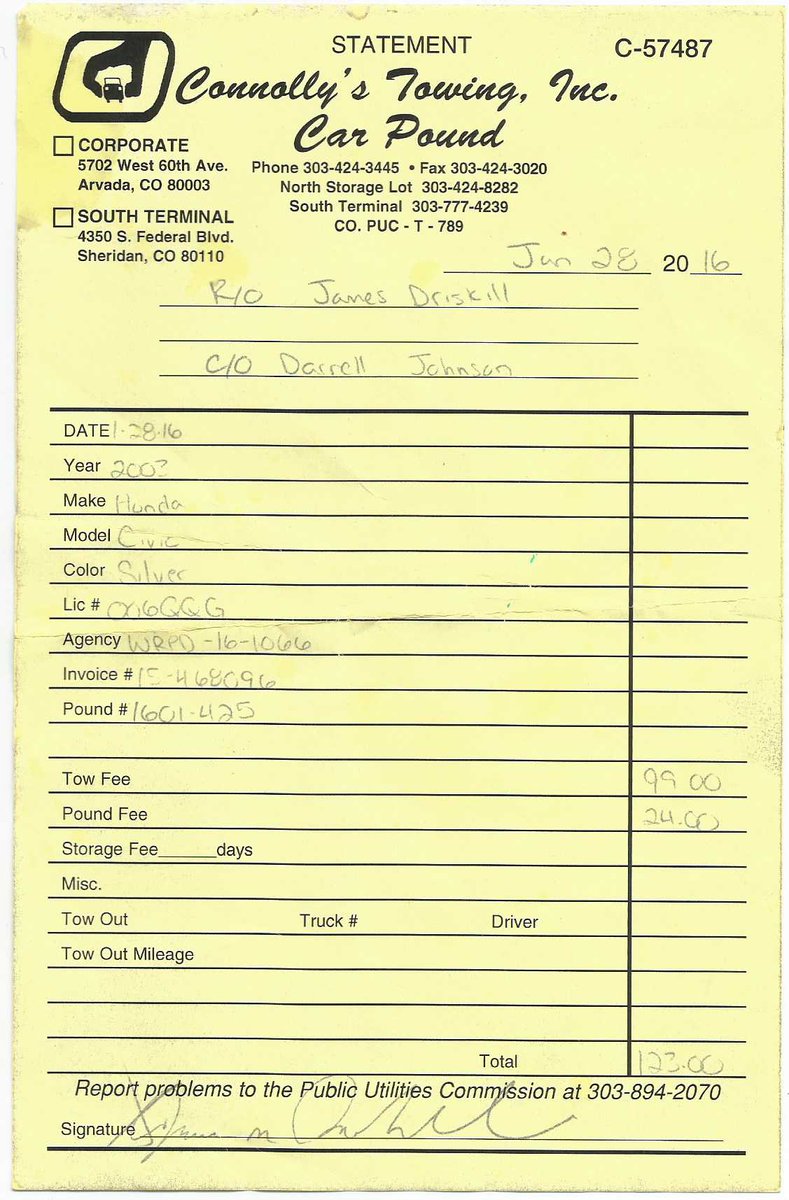 STATEMENT
C-57487
Connolly's Towing, Inc.
Car Pound
CORPORATE
5702 West 60th Ave.
Arvada, CO 80003
SOUTH TERMINAL
4350 S. Federal Blvd.
Sheridan, CO 80110
Phone 303-424-3445 • Fax 303-424-3020
North Storage Lot 303-424-8282
South Terminal 303-777-4239
CO. PUC - T - 789
Jan 28 2016
R/O James Driskill
C/O Darrell Johnson
DATE 1-28-16
Year 2003
Make Honda
Model Civic
Color Silver
Lic # 016QQG
Agency WRPD-16-1066
Invoice # 15-468096
Pound # 1601-425
Tow Fee 99 00
Pound Fee 24.00
Storage Fee______days
Misc.
Tow Out Truck # Driver
Tow Out Mileage
Total 123.00
Report problems to the Public Utilities Commission at 303-894-2070
Signature